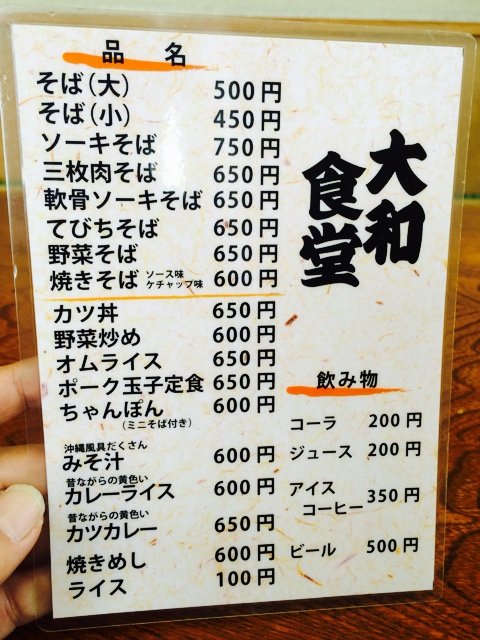 品名
そば(大) 500円
そば(小) 450円
ソーキそば 750円
三枚肉そば 650円
軟骨ソーキそば 650円
てびちそば 650円
野菜そば 650円
焼きそば ソース味 ケチャップ味 600円
カツ丼 650円
野菜炒め 600円
オムライス 650円
ポーク玉子定食 650円
ちゃんぽん 600円
(ミニそば付き)
沖縄風具だくさん
みそ汁 600円
昔ながらの黄色い
カレーライス 600円
昔ながらの黄色い
カツカレー 650円
焼きめし 600円
ライス 100円
大和
食堂
飲み物
コーラ 200円
ジュース 200円
アイス
コーヒー 350円
ビール 500円